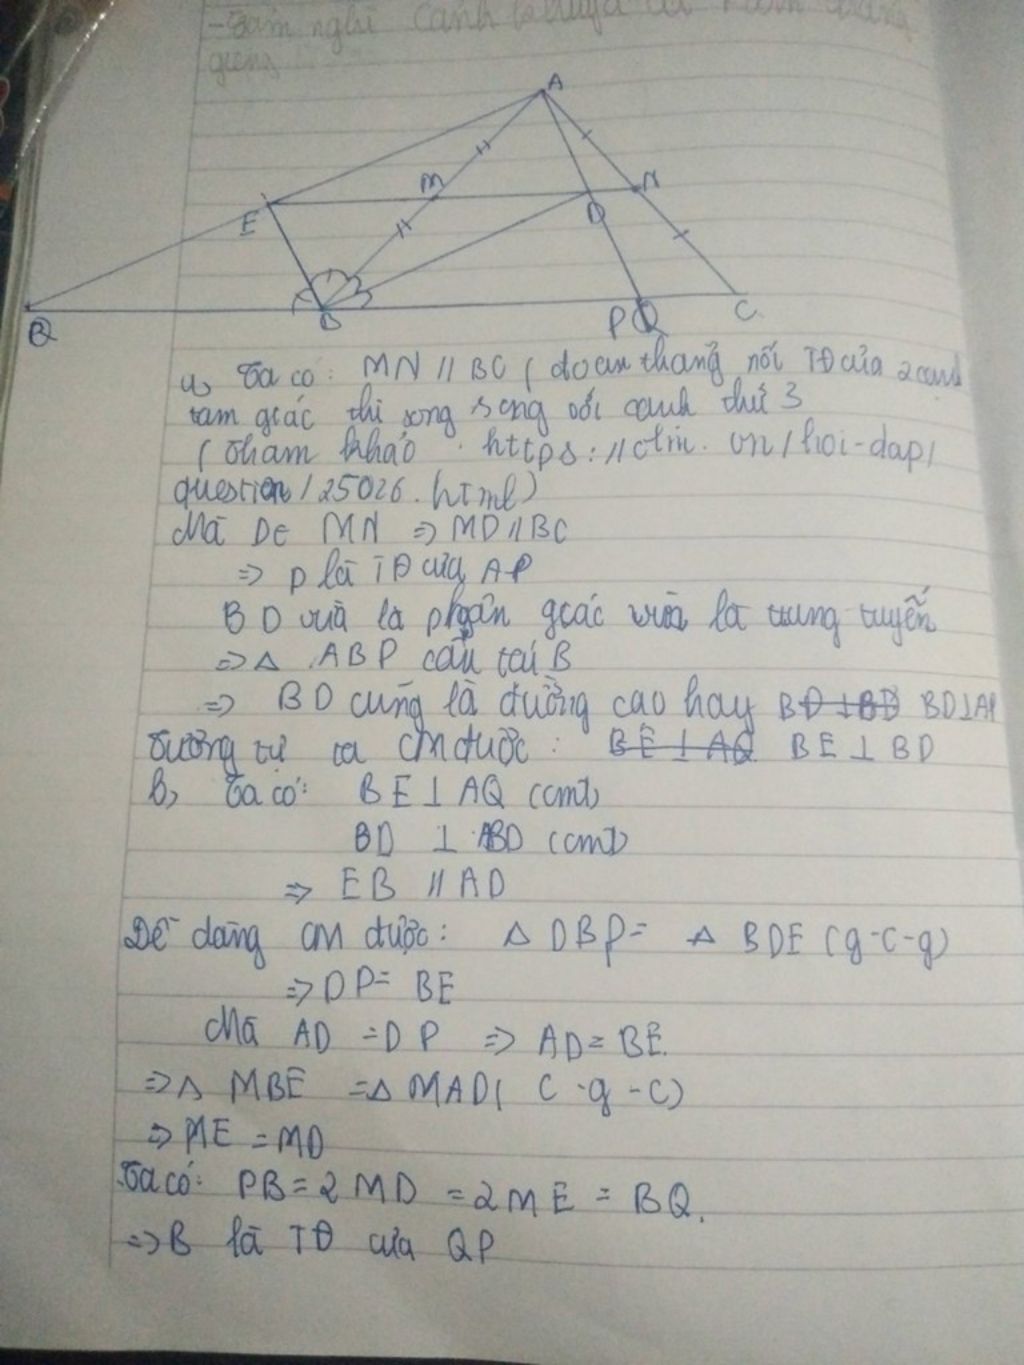 A
M
N
E
D
Q
B
P Q
C
a, Ta có: MN // BC ( đoạn thẳng nối TĐ của 2 cạnh
tam giác thì song song với cạnh thứ 3
( Tham khảo : https://olm.vn/hoi-dap/
question/25026.html)
Mà D∈ MN ⇒ MD // BC
⇒ D là TĐ của AP
BD vừa là phân giác vừa là trung tuyến
⇒ Δ ABP cân tại B
⇒ BD cũng là đường cao hay BD⊥BD BD⊥AP
Tương tự ta CM được: BE ⊥ AQ BE ⊥ BD
b, Ta có: BE ⊥ AQ (cmt)
BD ⊥ ABD (cmt)
⇒ EB // AD
Dễ dàng CM được: Δ DBP = Δ BDE (g-c-g)
⇒ DP = BE
Mà AD = DP ⇒ AD = BE.
⇒ Δ MBE = Δ MAD( c-g-c)
⇒ ME = MD
Ta có: PB = 2MD = 2ME = BQ.
⇒ B là TĐ của QP